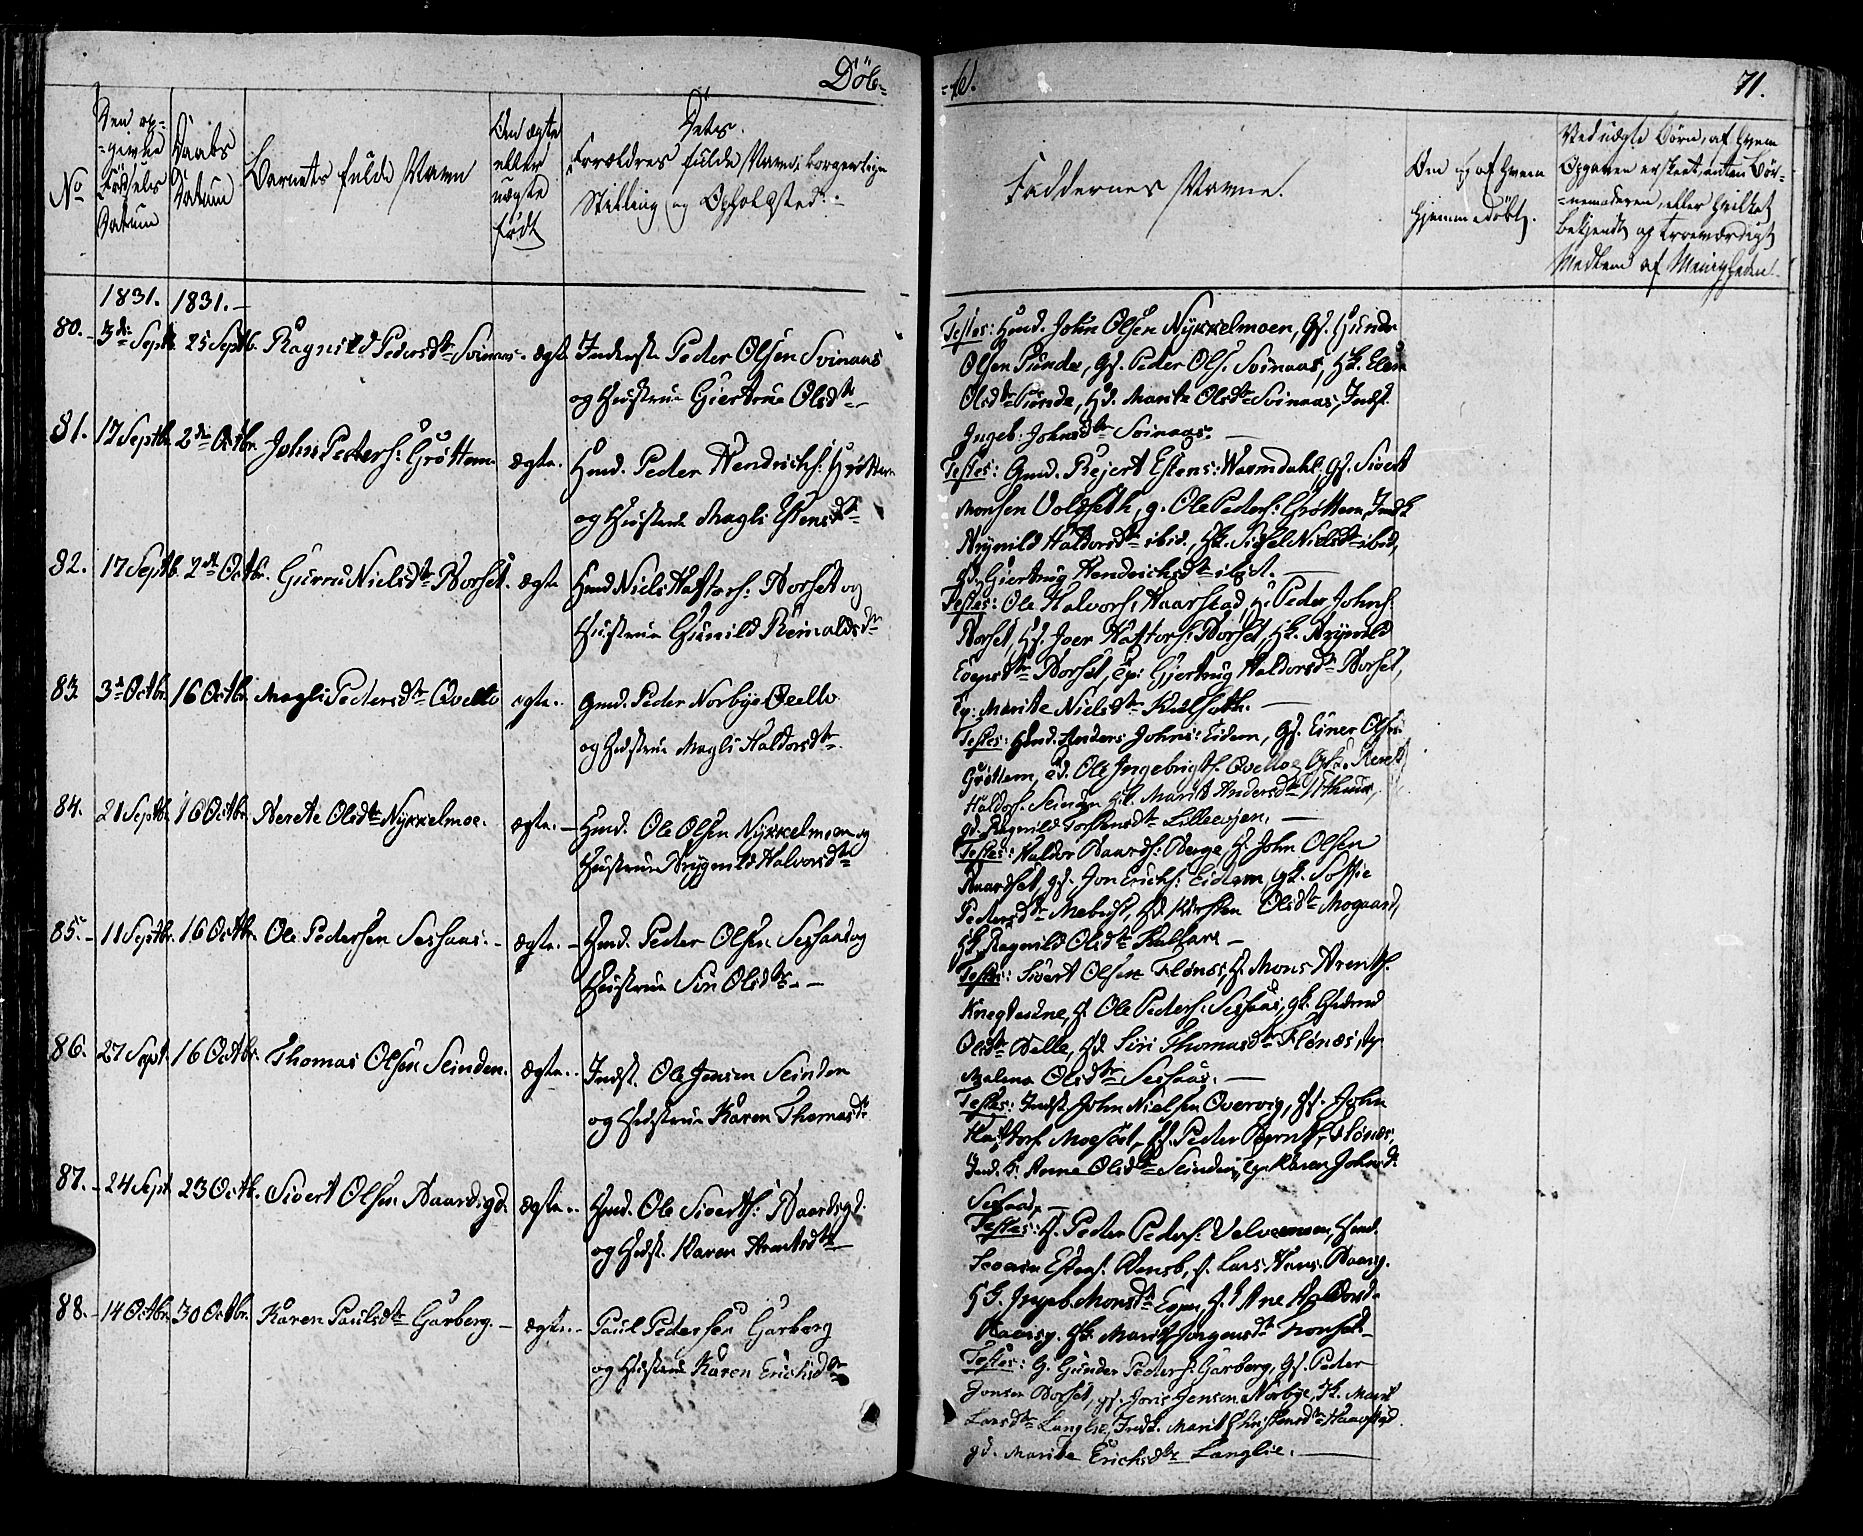 Döb-
-te.
71.
No
Den op-
-givne
Födsels
Datum
Daabs
Datum
Barnets fulde Navn
Om ægte
eller
uægte
födt
Dets
Forældres fulde Navn, borgerlige
Stilling og Opholdsted.
Faddernes Navne.
Om og af hvem
hjemmedöbt.
Ved uægte Börn, af hvem
Opgaven er skeet, enten Bör-
-nemoderen, eller hvilket
bekjendt og troeværdigt
Medlem af Menigheden.
1831. 1831.
80. 3de Septb. 25 Septb. Ragnild Pedersdtr Svinaas. ægte Inderst Peder Olsen Svinaas
og Hustrue Giertrue Olsdtr
Testes: Hmd. John Olsen Nykkelmoen, Gf. Gunder
Olsen Funde, Gf. Peder Ols. Svinaas, Hk. Elen
Olsdtr Funde, Hd. Marite Olsdtr Svinaas, Indst.
Ingeb. Johnsdtr Svinaas.
81. 17 Septb. 2den Octbr. John Peders: Gröttem ægte. Hmd. Peder Hendrichs: Gröttem
og Hustrue Magli Estensdtr
Testes: Gmd. Rejert Estens: Warmdahl, Gf. Sivert
Monsen Voldseth, g. Ole Peders: Gröttem, Indk
Brynild Haldorsdtr ibid., Hk. Sichel Nielsdtr ibid,
Gd. Giertrug Hendrichsdtr ibid.
82. 17 Septb. 2den Octbr. Gurru Nielsdtr Borset. ægte Hmd Niels Haftors: Borset og
Hustrue Gunild Reinaldsdtr
Testes: Ole Halvors: Haarstad, H. Peder Johns.
Borset, Hf. Joen Haftors: Borset, Hk. Brynild
Borset, Giertrug Haldorsdtr Borset,
Marite Nielsdtr Kulseth.
83. 3de Octbr. 16 Octbr. Magli Pedersdtr Qvello ægte. Gmd. Peder Norbye Qvello
og Hustrue Magli Haldorsdtr.
Testes: Hmd. Anders Johns: Eidem, Gf. Einer Olsen
Gröttem, Ole Ingebrigts. Qvelloe, Beret
Haldors. Seinden Hk. Marit Andersdtr Uthuus,
gd. Ragnild Torstensdtr Lilleevjen.
84. 21 Septbr. 16 Octbr. Berete Olsdtr Nykkelmoe. ægte. Hmd. Ole Olsen Nykkelmoen og
Hustrue Brygnild Halvorsdtr
Testes: Haldor Baards: Berge, H. John Olsen
Baardset, gf. Jon Erichs: Eidem, gk. Soffie
Pedersdtr Mebust, Hd. Kirsten Olsdtr Mogaard,
Hk. Ragnild Olsdtr Kalsare
85. 11 Septbr. 16 Octbr. Ole Pedersen Seshaas. ægte. Hmd. Peder Olsen Seshaas og
Hustrue Siri Olsdtr
Testes: Sivert Olsen Flönes, H. Mons Arents.
Kregdesune, H. Ole Peders: Seshaas, gk. Gudrud
Olsdtr Belle, Hd. Siri Thomasdtr Flönes,
Malena Olsdtr Seshaas.
86. 27 Sept. 16 Octbr. Thomas Olsen Seinden. ægte. Indst. Ole Jensen Seinden
og Hustrue Karen Thomasdtr
Testes: Indst John Nielsen Overvig, Gf. John
Haftors. Moesört, Gf. Peder Bernts. Flönes,
Ind. k. Anne Olsdtr Seinden, Karen Johnsdtr
Seshaas.
87. 24 Sept. 23 Octb. Sivert Olsen Baardsgd. ægte. Hmd. Ole Siverts: Baardsgd.
og Hust. Karen Arentsdtr
Testes: H. Peder Peders: Velvemoen, Hmd.
Estens. Lars Hans. Baarsg.
Hk. Ingeb. Monsdtr Ane Haldorsd.
Baarsg. Hk. Marit Jörgensdtr
88. 14 Octbr. 30 Octbr. Karen Paulsdtr Garberg. ægte. Paul Pedersen Garberg
og Hustrue Karen Erichsdtr
Testes: G. Gunder Peders: Garberg, Gf. Peder
Jonsen Borset, gf. Joris Jensen Norbye, Hk. Marit
Larsdtr Langlie, Indst. Marit Christensdtr
gd. Marite Erichsdtr Langlie.